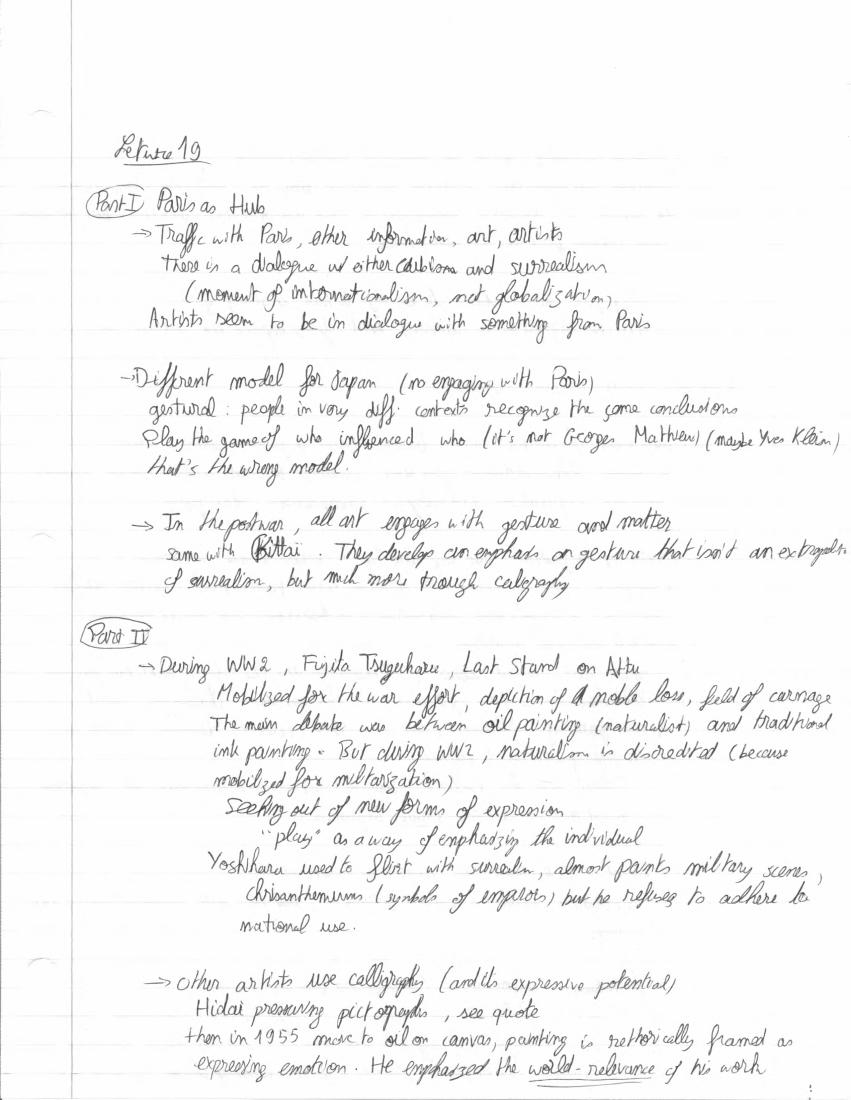 Lecture 19
Part I Paris as Hub
→ Traffic with Paris, other information, art, artists
there is a dialogue w/ either Cubism and surrealism
(moment of internationalism, not globalization)
Artists seem to be in dialogue with something from Paris
→ Different model for Japan (no engaging with Paris)
gestural : people in very diff. contexts recognize the same conclusions
Play the game of who influenced who (it's not Georges Mathieu) (maybe Yves Klein)
that's the wrong model.
→ In the postwar, all art engages with gesture and matter
same with . They develop an emphasis on gesture that isn't an
of surrealism, but much more trough caligraphy
Part II
→ During WW2, Fujita Tsuguharu, Last Stand on Attu
Mobilized for the war effort, depiction of a noble loss, field of carnage
The main debate was between oil painting (naturalist) and traditional
ink painting. But during WW2, naturalism is discredited (because
mobilized for miltarization)
Seeking out of new forms of expression
"play" as a way of emphasizing the individual
Yoshihara used to flirt with surrealism, almost paints military scenes,
chrisanthemums (symbols of emperors) but he refuses to adhere to
national use.
→ Other artists use calligraphy (and its expressive potential)
Hidai pressuring pictographs, see quote
then in 1955 move to oil on canvas, painting is rethorically framed as
expressing emotion. He emphasized the world-relevance of his work